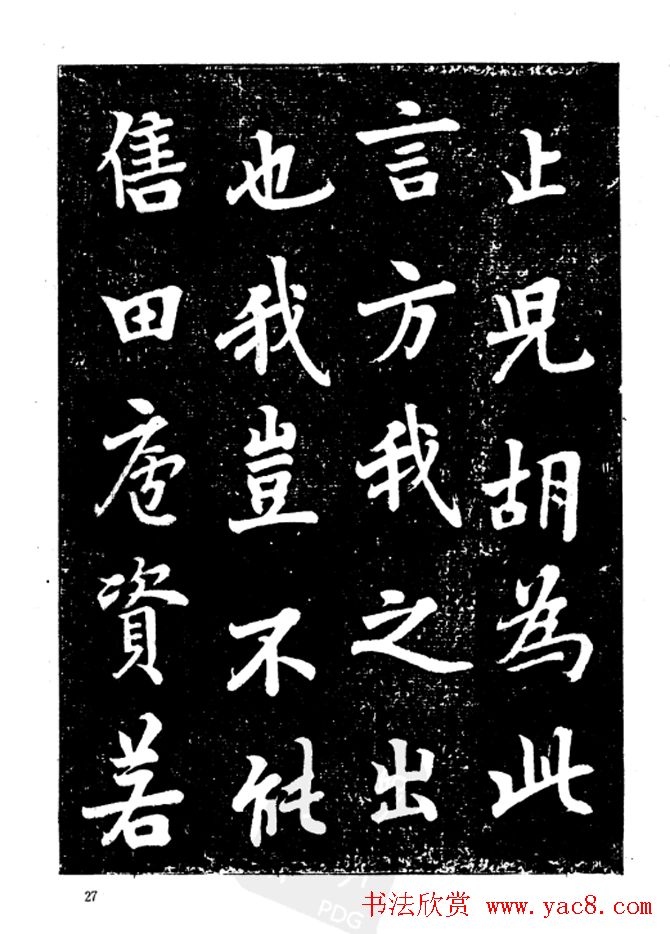 止兒胡為此
言方我之出
也我豈不能
售田廬資若
27
书法欣赏 www.yac8.com
PDG